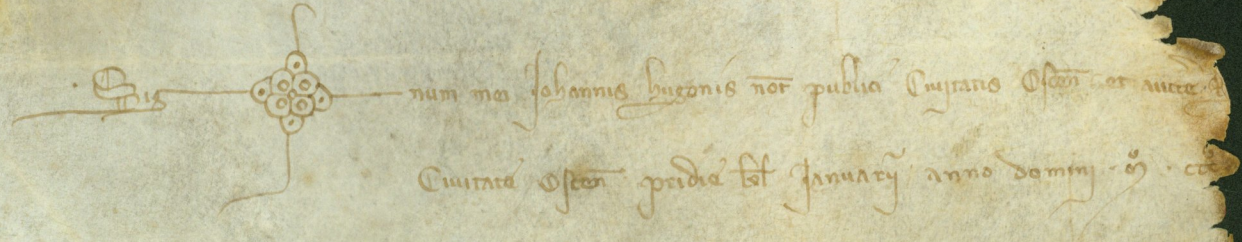 Sig num mei Johannis hugonis not publici Civitatis Oscen et aucte
Civitate Oscen pridie kl Januarii anno domini mº